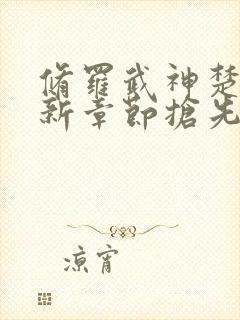 脩羅武神楚
新章節搶先
涼宵